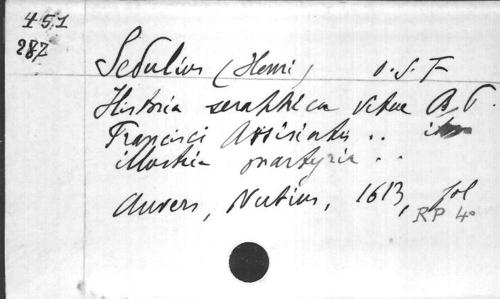 451
287
Sedulius (Henri) O.S.F
Historia seraphica vitae B. P.
Francisci Assisiatis ..
illustria martyria ..
Anvers, Nutius, 1613, fol
RP 4°